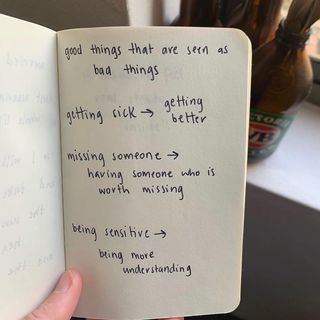 good things that are seen as
bad things
getting sick → getting
better
missing someone →
having someone who is
worth missing
being sensitive →
being more
understanding
VB